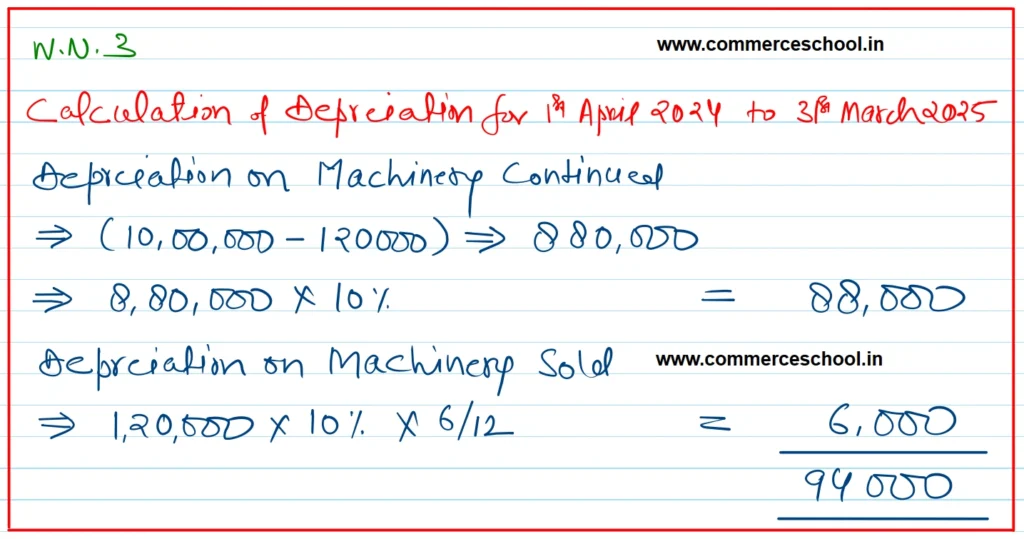 W.N.3
www.commerceschool.in
Calculation of Depreciation for 1st April 2024 to 31st March 2025
Depreciation on Machinery Continued
⇒ (10,00,000 - 120000) ⇒ 880,000
⇒ 8,80,000 × 10% = 88,000
Depreciation on Machinery Sold
www.commerceschool.in
⇒ 1,20,000 × 10% × 6/12 = 6,000
94000